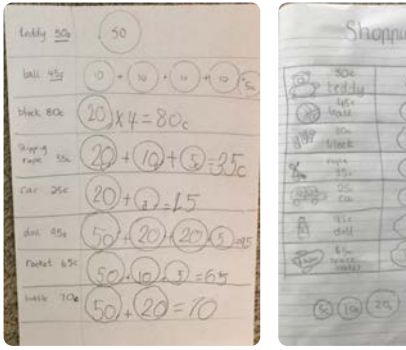 teddy 50c 50
ball 45c 10 + 10 + 10 + 10 + 5c
block 80c 20 x 4 = 80c
Skipping rope 35c 20 + 10 + 5 = 35c
car 25c 20 +
doll 95c 50 + 20 + 20 5 = 95
rocket 65c 50 + 10 + 5 = 65
70c 50 + 20 = 70
Shoppi
50c
teddy
45c
ball
80c
block
rope
35c
25c
car
95c
doll
65c
rocket
5c 10c 20c